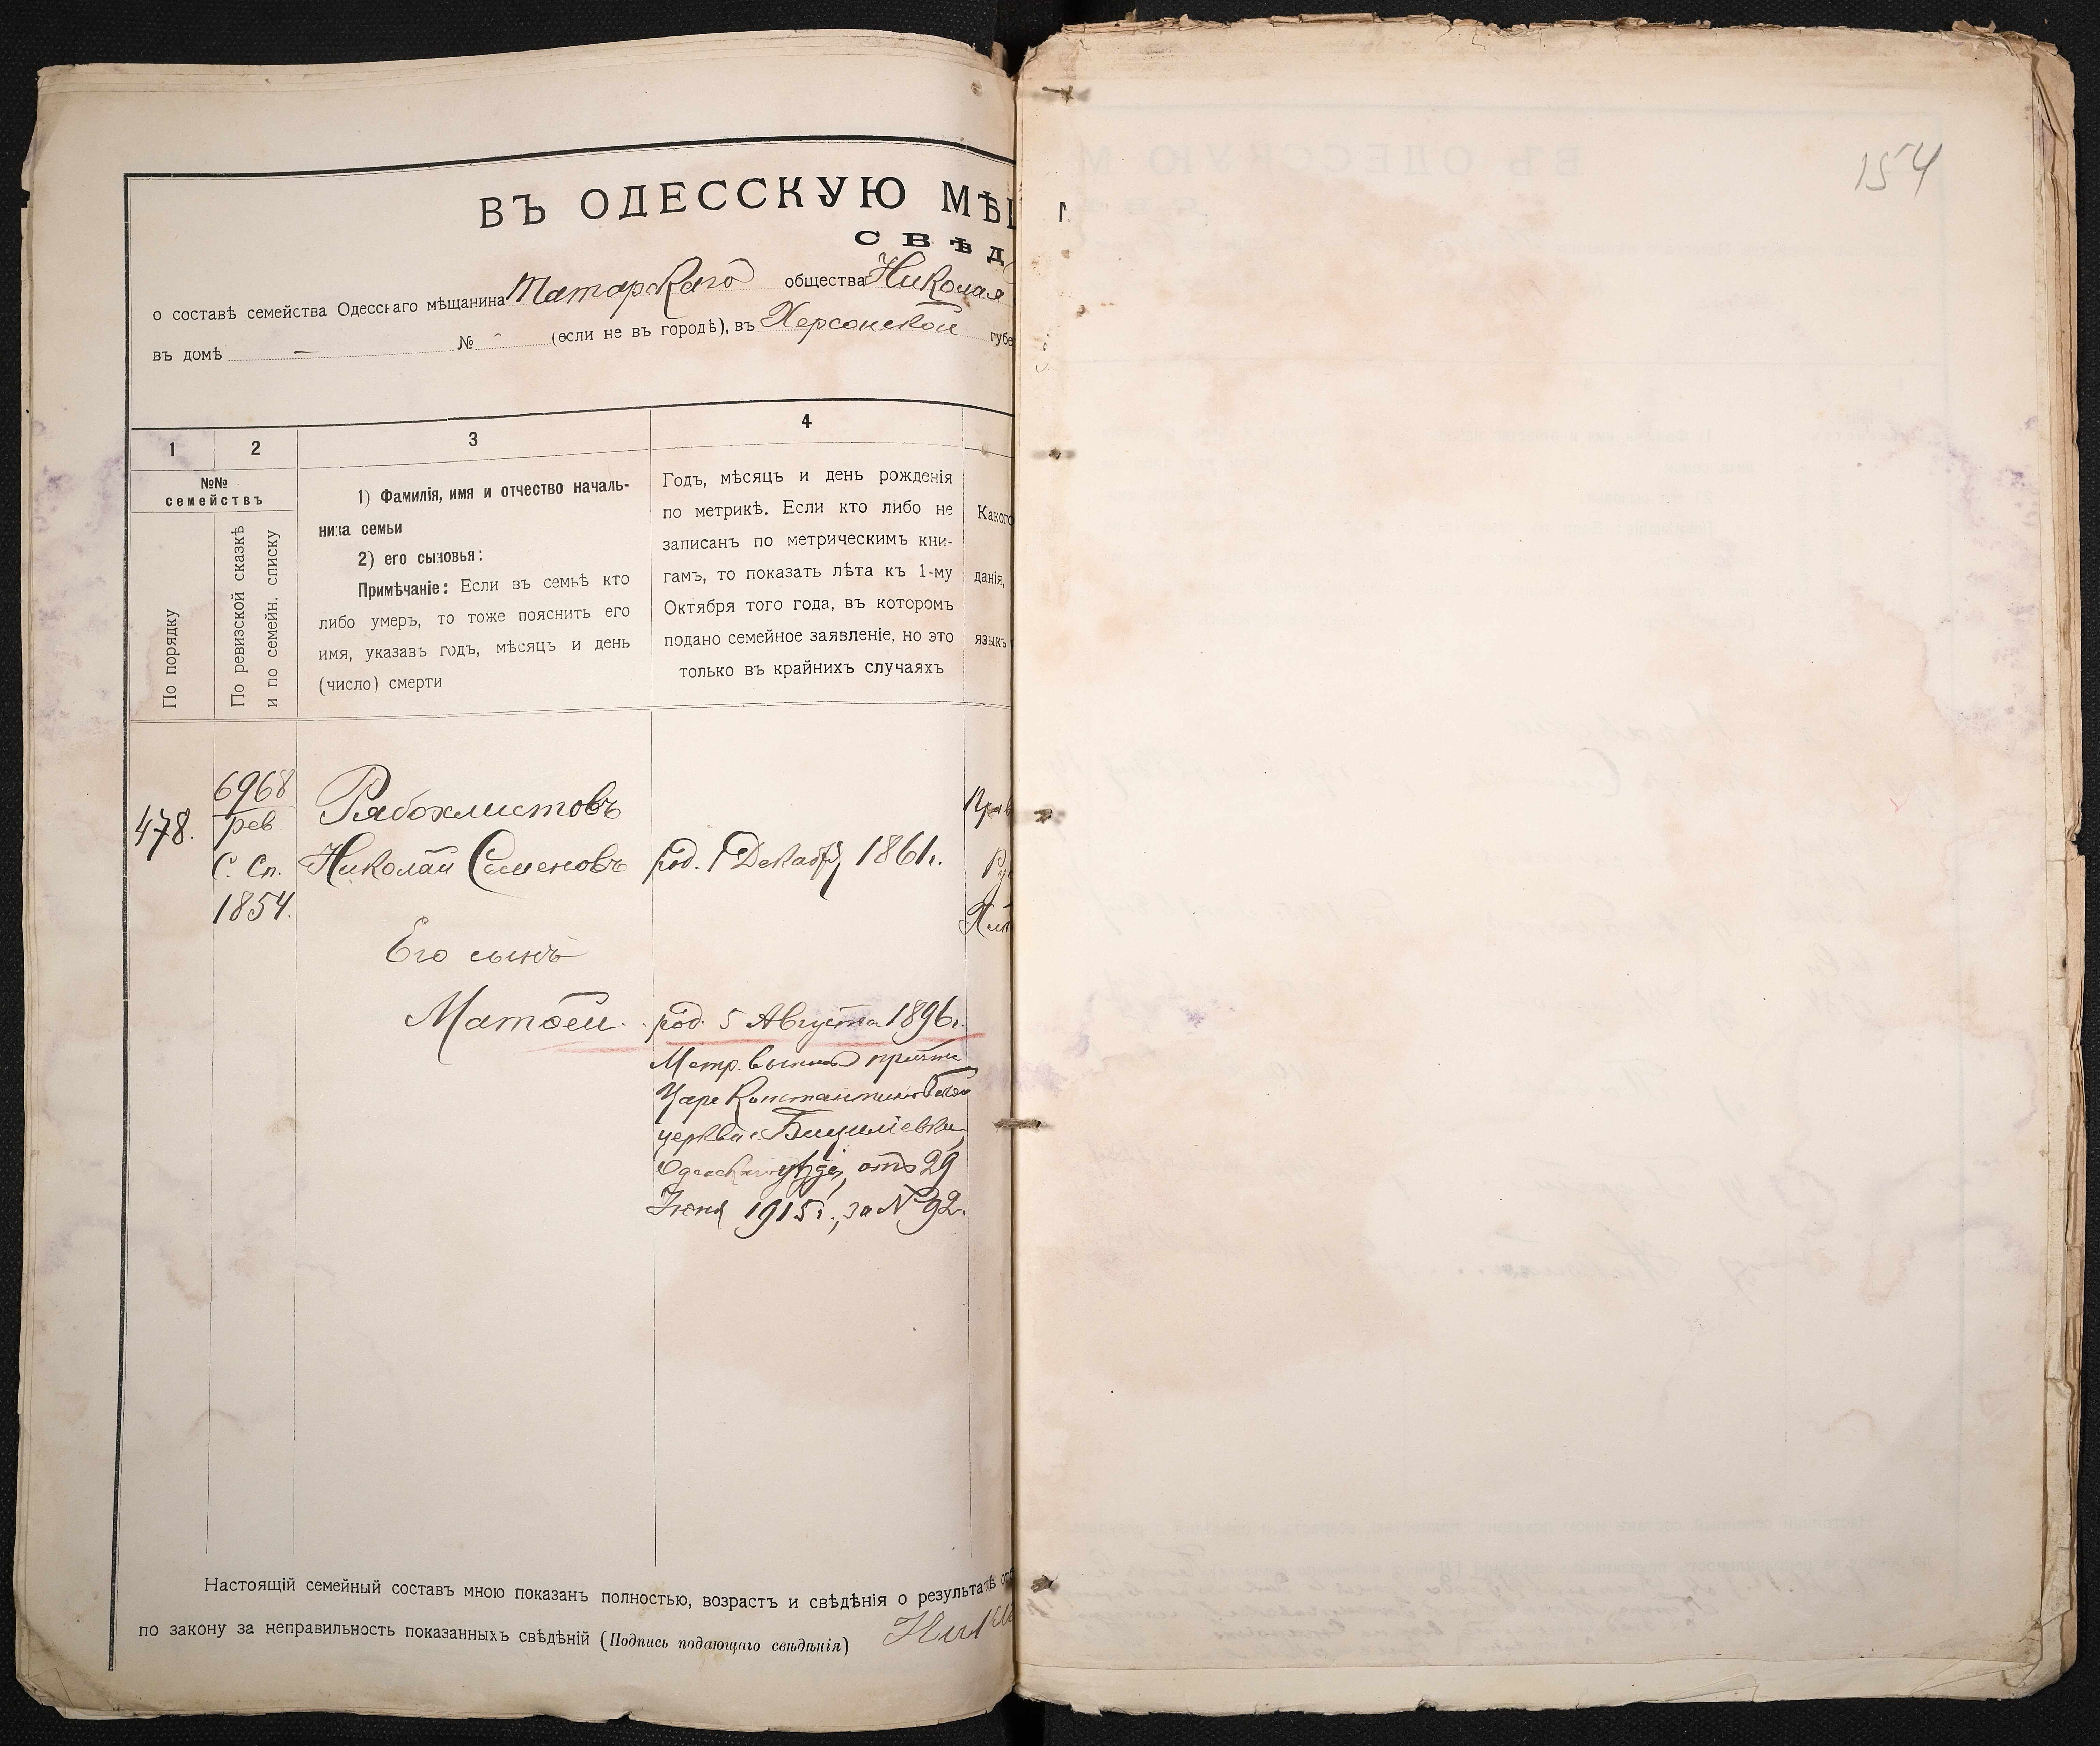 ВЪ ОДЕССКУЮ МѢЩ
СВѢД
о составѣ семейства Одесскаго мѣщанина Татарскаго общества Николая
въ домѣ — № - (если не въ городѣ), въ Херсонской губе
1
2
3
4
№№
семействъ
По порядку
По ревизской сказкѣ
и по семейн. списку
1) Фамилія, имя и отчество началь-
ника семьи
2) его сыновья:
Примѣчаніе: Если въ семьѣ кто
либо умеръ, то тоже пояснить его
имя, указавъ годъ, мѣсяцъ и день
(число) смерти
Годъ, мѣсяцъ и день рожденія
по метрикѣ. Если кто либо не
записанъ по метрическимъ кни-
гамъ, то показать лѣта къ 1-му
Октября того года, въ которомъ
подано семейное заявленіе, но это
только въ крайнихъ случаяхъ
Какого
данія,
языкъ
478.
6968
рев
С. Сп.
1854.
Рябохлистовъ
Николай Семеновъ
род. 1 Декабря 1861 г.
Прав
Ру
Его сынъ
Матѳей.
род. 5 Августа 1896 г.
Метр. выпись причта
Царе Константиновской
церкви с. Бицилевки,
Одесскаго уѣзда, отъ 29
Іюня 1915 г., за № 92.
Настоящій семейный составъ мною показанъ полностью, возрастъ и свѣдѣнія о результатѣ от
по закону за неправильность показанныхъ свѣдѣній (Подпись подающаго свѣдѣнія) Ник
154